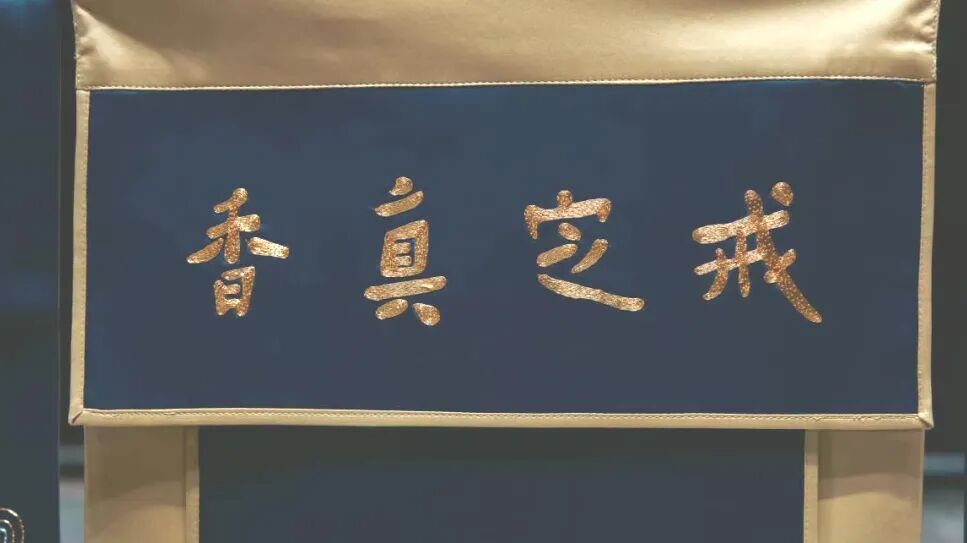 戒定真香